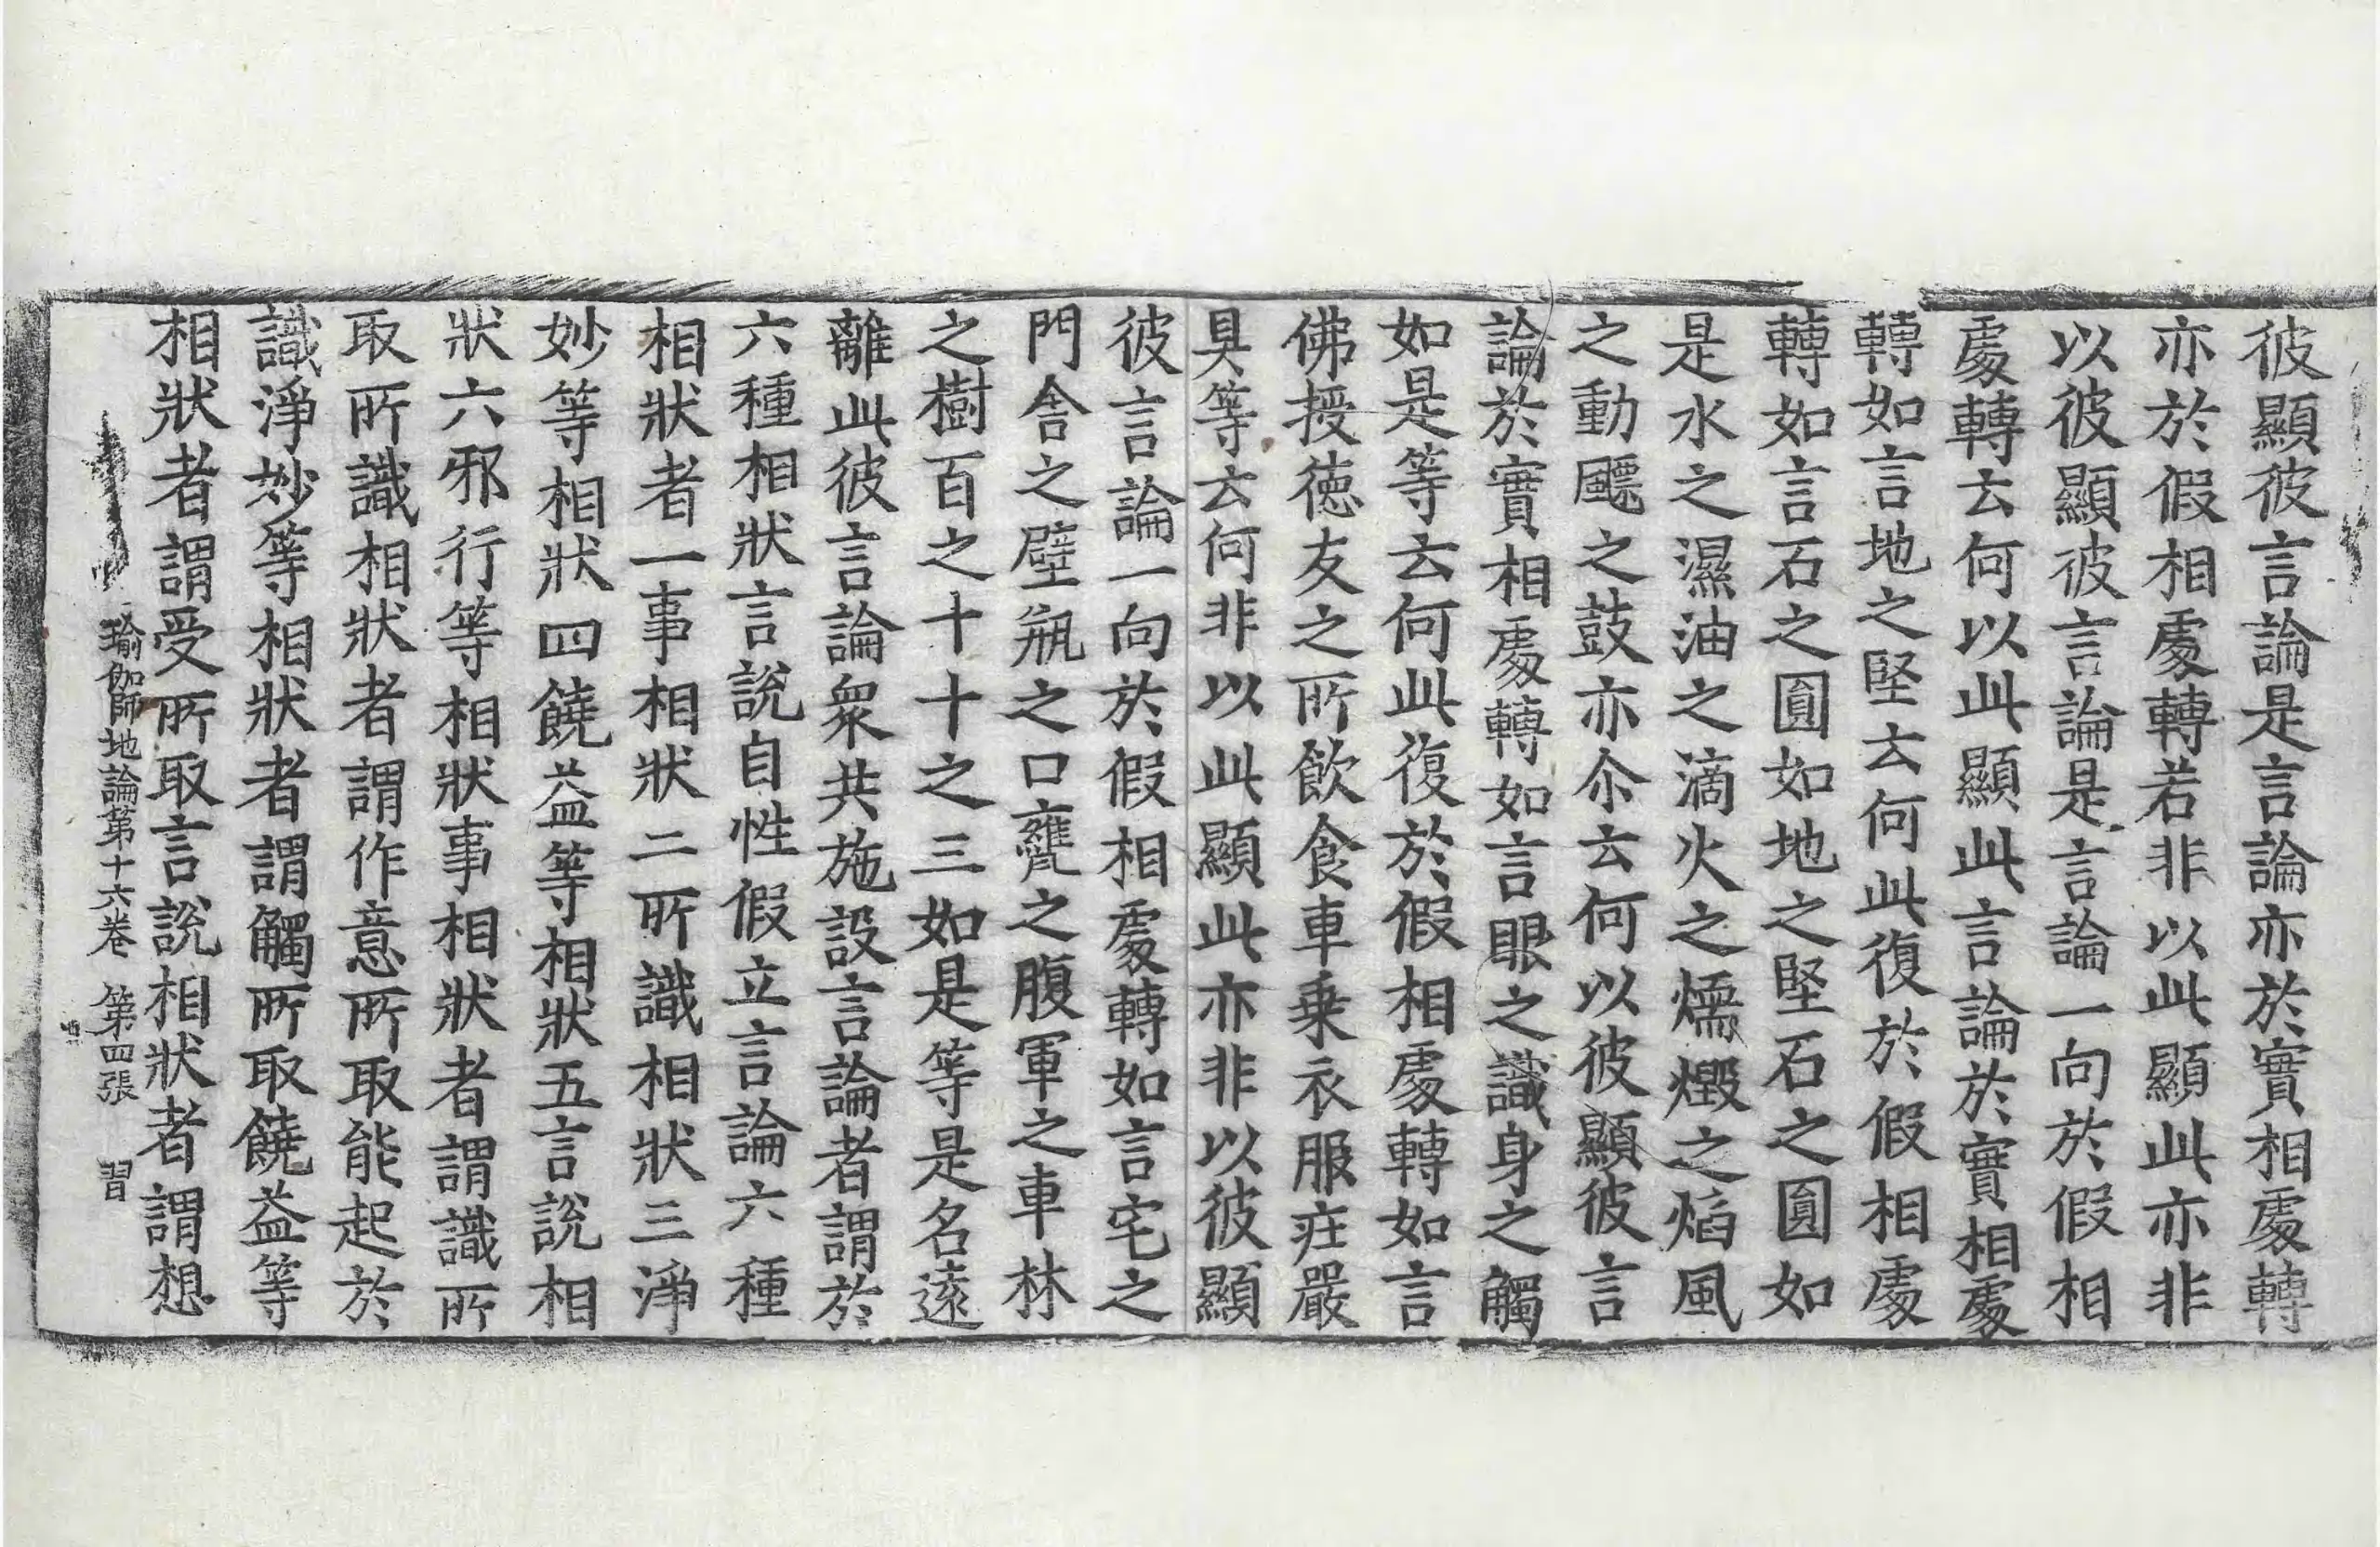 彼顯彼言論是言論亦於實相處轉
亦於假相處轉若非以此顯此亦非
以彼顯彼言論是言論一向於假相
處轉云何以此顯此言論於實相處
轉如言地之堅云何此復於假相處
轉如言石之圓如地之堅石之圓如
是水之濕油之滴火之煗燬之焰風
之動飃之鼓亦尒云何以彼顯彼言
論於實相處轉如言眼之識身之觸
如是等云何此復於假相處轉如言
佛授徳友之所飲食車乗衣服疘嚴
具等云何非以此顯此亦非以彼顯
彼言論一向於假相處轉如言宅之
門舍之壁瓶之口甕之腹軍之車林
之樹百之十十之三如是等是名遠
離此彼言論衆共施設言論者謂於
六種相狀言說自性假立言論六種
相狀者一事相狀二所識相狀三淨
妙等相狀四饒益等相狀五言說相
狀六邪行等相狀事相狀者謂識所
取所識相狀者謂作意所取能起於
識淨妙等相狀者謂觸所取饒益等
相狀者謂受所取言說相狀者謂想
瑜伽師地論第十六卷 第四張 習